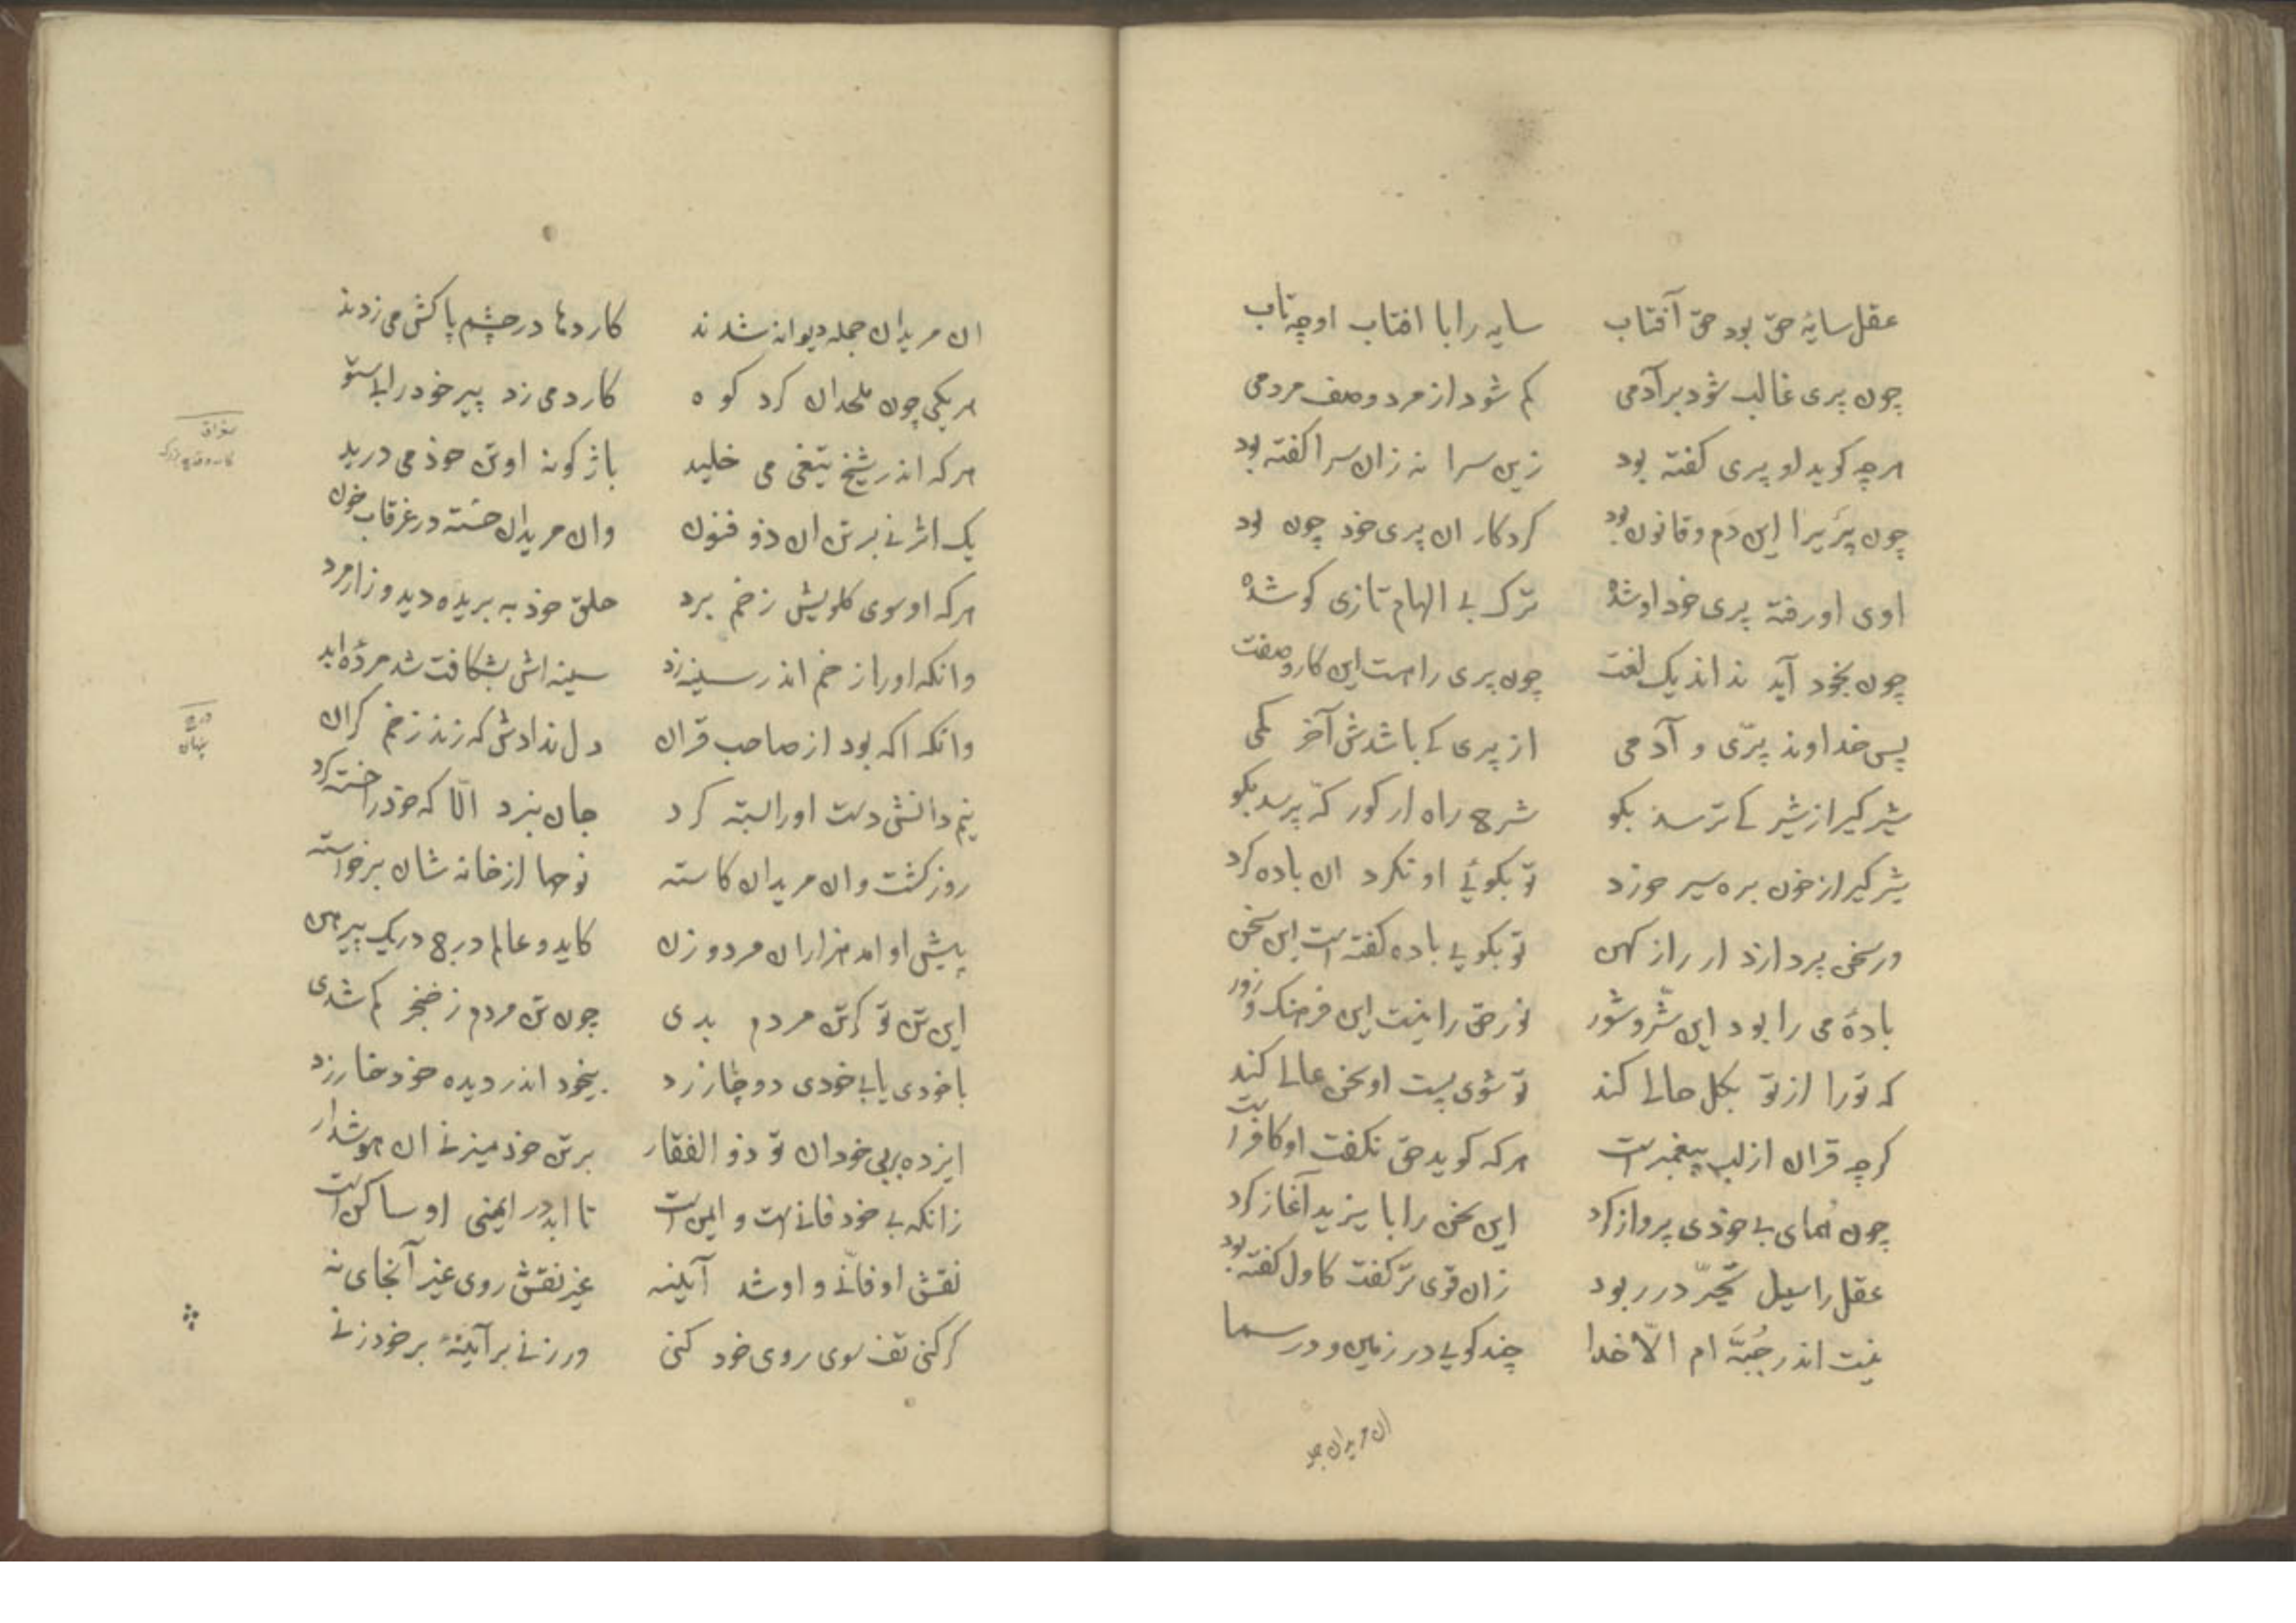 عقل سایهٔ حق بود حق آفتاب سایه را با افتاب او چه تاب
چون پری غالب شود بر آدمی کم شود از مرد وصف مردمی
هرچه کوید او پری کفته بود زین سرا نه زان سرا کفته بود
چون پریرا این دم و قانون بود کردکار ان پری خود چون بود
اوی او رفته پری خود او شده ترک بی الهام تازی کو شده
چون بخود آید نداند یک لغت چون پری را هست این کار و صفت
پس خداوند پری و آدمی از پری کی باشدش آخر کمی
شیر کیر از شیر کی ترسد بکو شرح راه ار کور که پرسد بکو
شیر کیر ار خون بره سیر خورد تو بکوئی او نکرد ان باده کرد
ور سخن پردازد ار راز کهن تو بکویی باده کفته است این سخن
بادهٔ می را بود این شر و شور نور حق را نیست این فرهنک و زور
که تورا از تو بکل حالی کند تو شوی پست او سخن عالی کند
کرچه قران از لب پیغمبر است هرکه کوید حق نکفت او کافر است
چون همای بی خودی پرواز کرد این سخن را با یزید آغاز کرد
عقل را سیل تحیّر در ربود زان قوی تر کفت کاول کفته بود
نیست اندر جُبَّه ام الّا خدا چند کویی در زمین و در سما
ان مریدان جو
ان مریدان جمله دیوانه شدند کاردها در چشم پاکش می زدند
هریکی چون ملحدان کرد کوه کارد می زد پیر خود را بی ستو
هرکه اندر شیخ تیغی می خلید باژکونه او تن خود می درید
یک اثر نی بر تن ان ذو فنون وان مریدان خسته در غرقاب خون
هرکه او سوی کلویش زخم برد حلق خود ببریده دید و زار مرد
وانکه اورا زخم اندر سینه زد سینه اش بشکافت شد مردهٔ ابد
وانکه اکه بود از صاحب قران دل ندادش که زند زخم کران
نیم دانش دست اورا بسته کرد جان ببرد الّا که خود را خسته کرد
روز کشت وان مریدان کاسته نوحها از خانه شان برخواسته
پیش او امد هزاران مرد و زن کاید و عالم درج در یک پیرهن
این تن تو کر تن مردم بدی چون تن مردم ز خنجر کم شدی
با خودی یا بی خودی دوچار زد بیخود اندر دیده خود خار زد
ایزده بر بی خودان تو ذو الفقار بر تن خود میزنی ان هوش دار
زانکه بی خود فانی است و ایمن است تا ابد در ایمنی او ساکن است
نقش او فانی و او شد آینه غیر نقش روی غیر آنجای نه
کر کنی تف سوی روی خود کنی ور زنی بر آینهٔ بر خود زنی
درج
پنهان